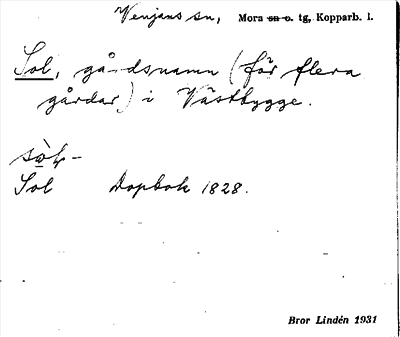 Venjans sn, Mora sn o. tg, Kopparb. l.
Sol, gårdsnamn (för flera
gårdar) i Västbygge.
Sol Dopbok 1828.
Bror Lindén 1931